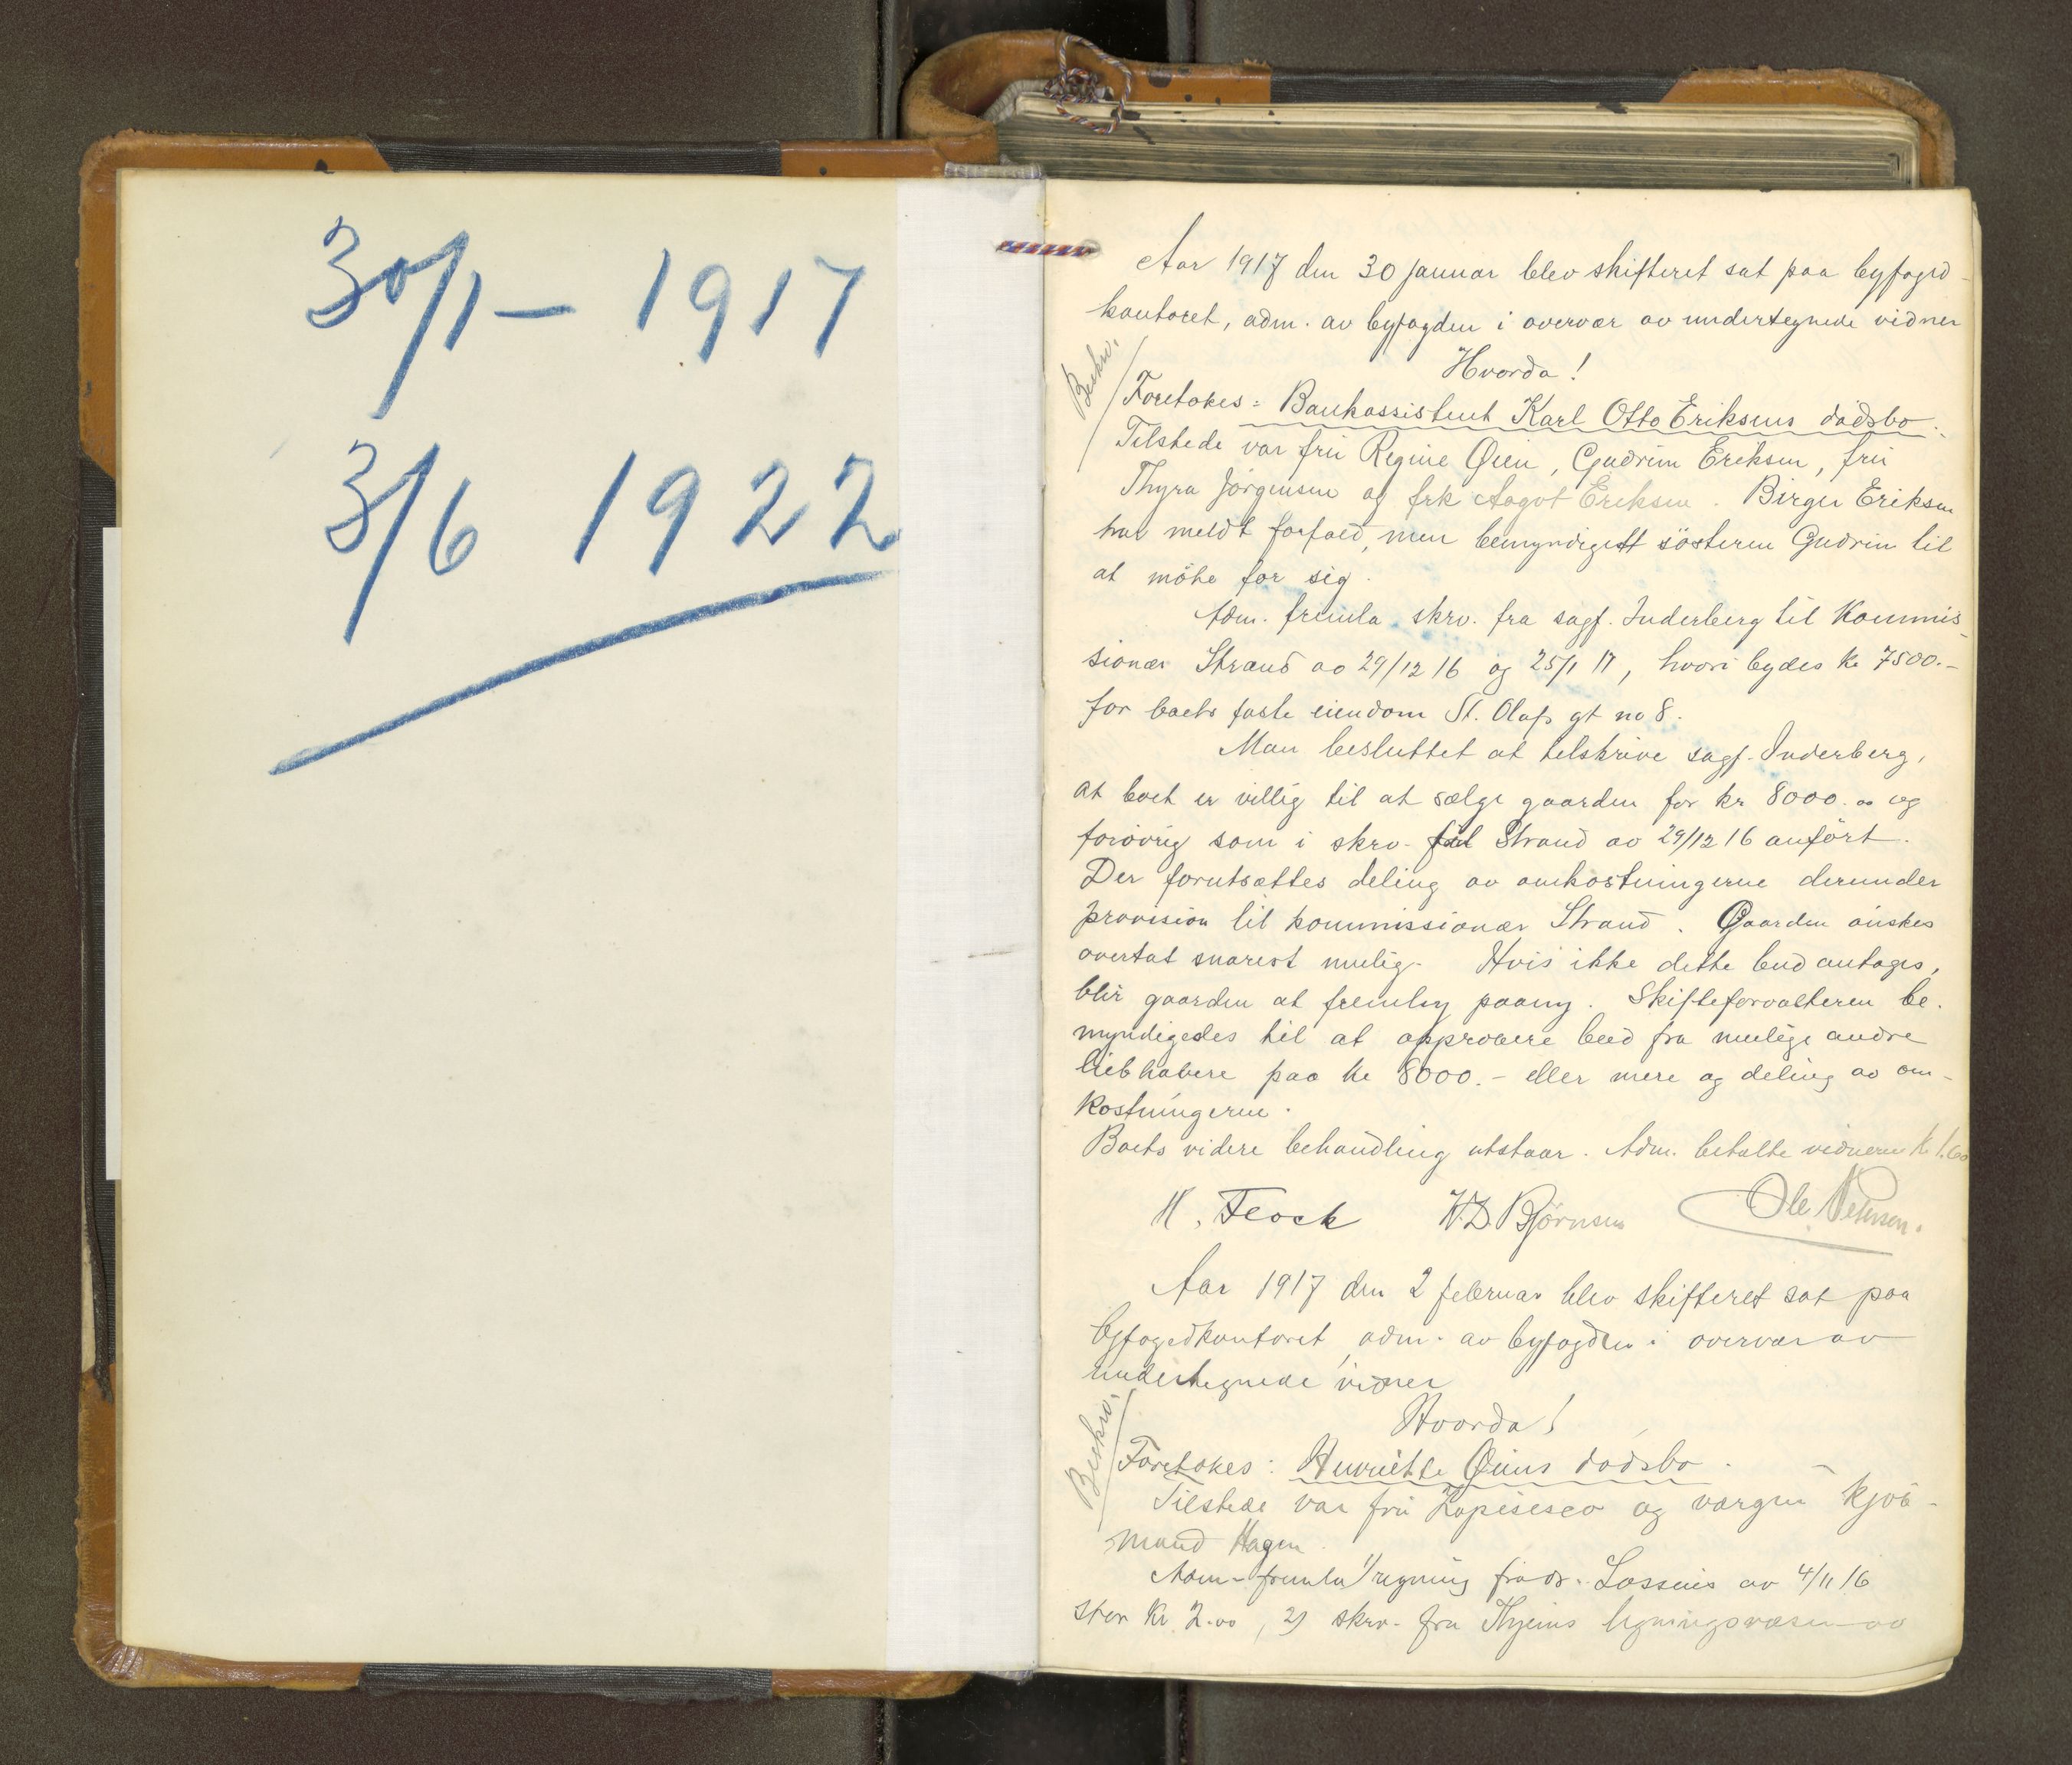 30/1 - 1917
3/6 1922
Aar 1917 den 30 januar blev skifteret sat paa byfogd-
kontoret, adm. av byfogden i overvær av undertegnede vidner
Hvorda!
Beskr.
Foretokes: Bankassistent Karl Otto Eriksens dödsbo.
Tilstede var fru Regine Øien, Gudrun Eriksen, fru
Thyra Jörgensen og frk Aagot Eriksen. Birger Eriksen
har meldt forfald, men bemyndiget sösteren Gudrun til
at möte for sig.
Adm. fremla skrv. fra sagf. Inderberg til Kommis-
sionær Strand av 29/12 16 og 25/1 17, hvori bydes kr 7500.-
for boets faste eiendom St. Olafs gt no 8.
Man besluttet at tilskrive sagf. Inderberg,
at boet er villig til at sælge gaarden for kr 8000.00 og
forövrig som i skrv. til Strand av 29/12 16 anfört.
Der forutsættes deling av omkostningerne derunder
provision til kommissionær Strand. Gaarden önskes
overtat snarest mulig. Hvis ikke dette bud antages,
blir gaarden at fremby paany. Skifteforvalteren be-
myndigedes til at approbere bud fra mulige andre
liebhabere paa kr 8000.- eller mere og deling av om-
kostningerne.
Boets videre behandling utstaar. Adm. betalte vidnerne kr 1.60
H. Flock W.D. Bjørnsen Ole Petersen.
Aar 1917 den 2 februar blev skifteret sat paa
byfogedkontoret, adm. av byfogden i overvær av
undertegnede vidner
Hvorda!
Beskr.
Foretokes: Henriette Øiens dödsbo.
Tilstede var fru og værgen kjöb-
mand Hagen.
Adm. fremla 1) regning fra dr. Lassens av 4/11 16
stor Kr 2.00, 2) skrv. fra Thjems ligningsvæsen av